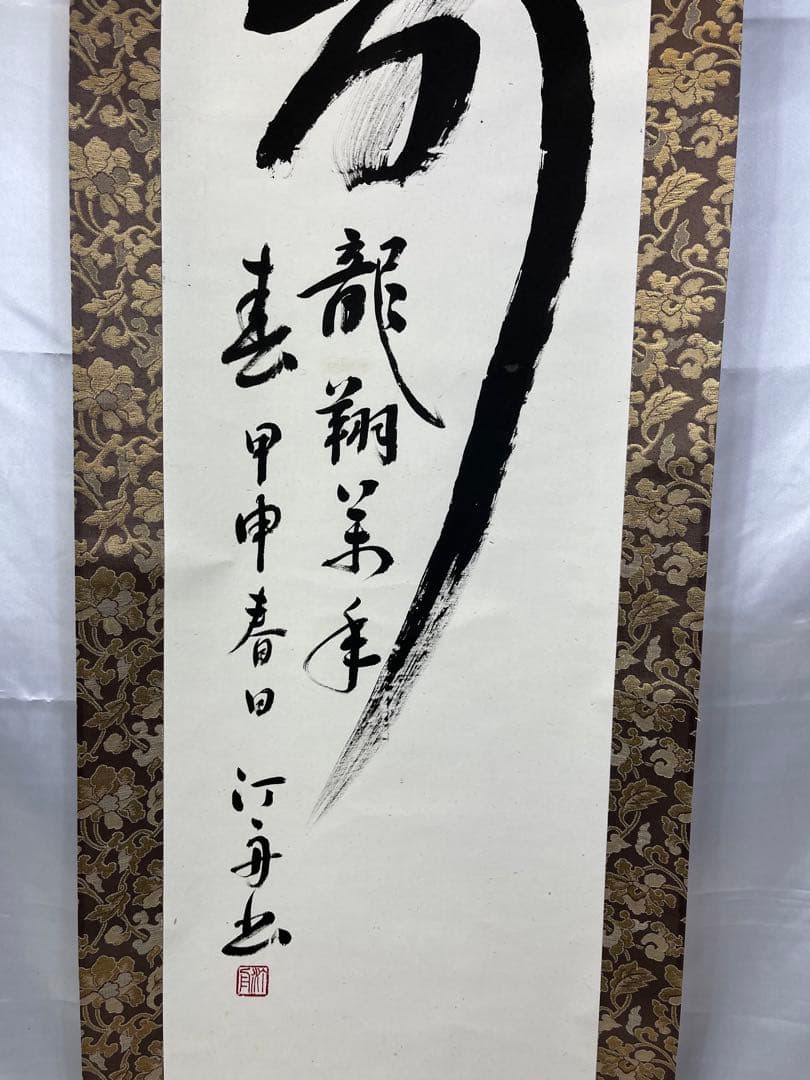 龍翔萬年
春 甲申春日 汀舟書